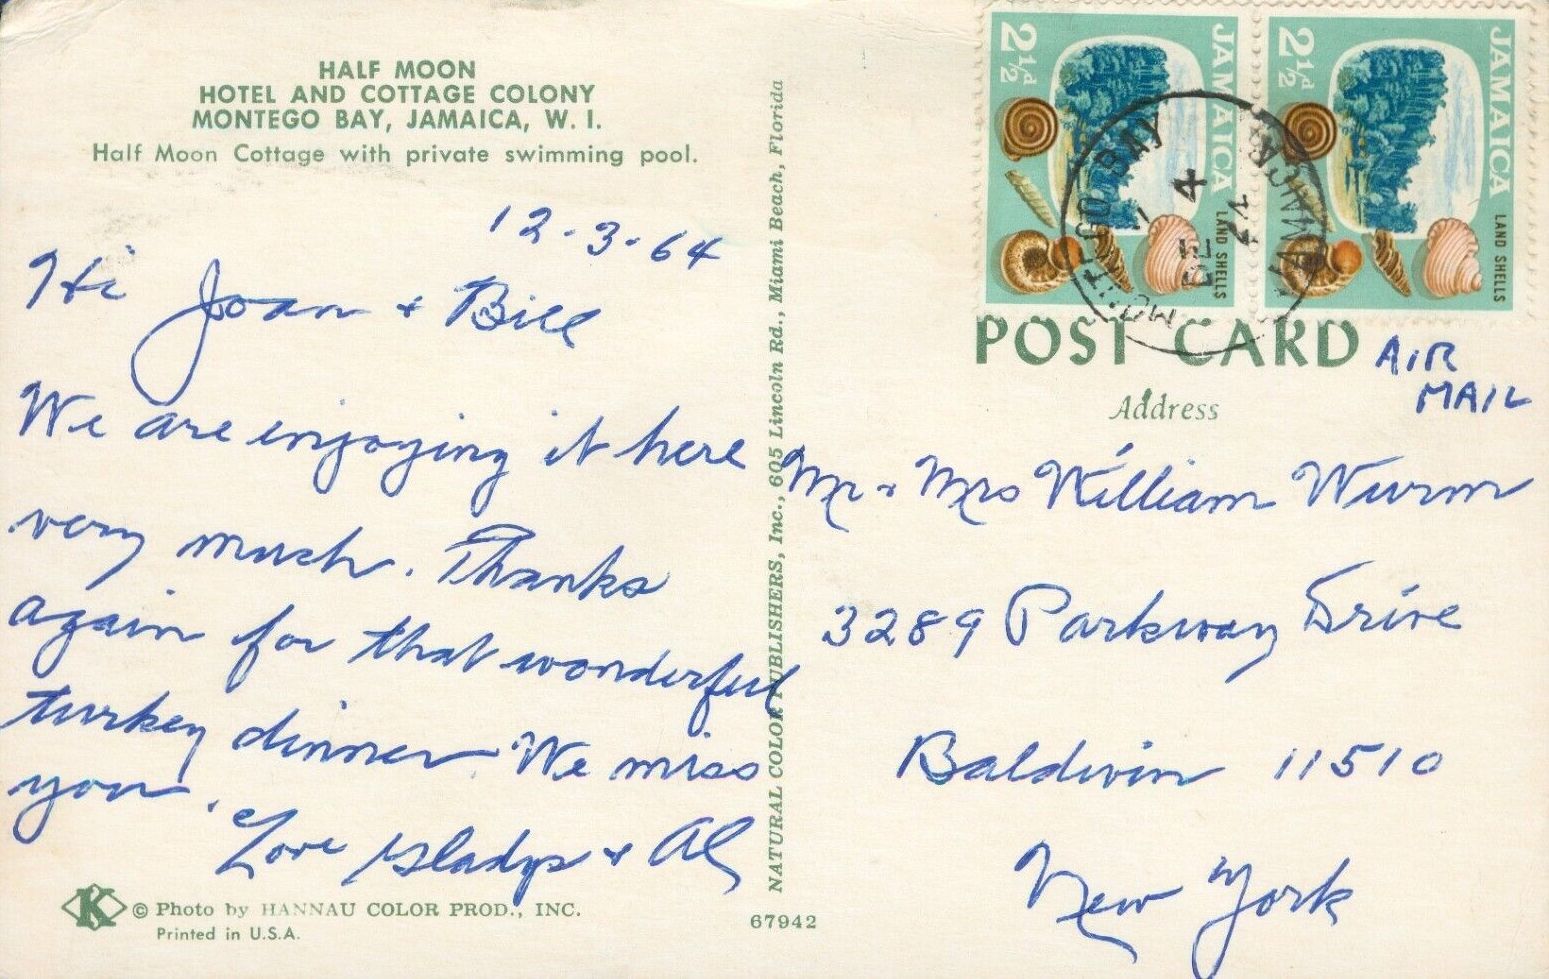 HALF MOON
HOTEL AND COTTAGE COLONY
MONTEGO BAY, JAMAICA, W. I.
Half Moon Cottage with private swimming pool.
12-3-64
Hi Joan + Bill
We are enjoying it here
very much. Thanks
again for that wonderful
turkey dinner. We miss
you.
Love Gladys + Al
K
© Photo by HANNAU COLOR PROD., INC.
Printed in U.S.A.
NATURAL COLOR PUBLISHERS, Inc., 605 Lincoln Rd., Miami Beach, Florida
67942
2½d JAMAICA LAND SHELLS
2½d JAMAICA LAND SHELLS
MONTEGO BAY JAMAICA
4 DE
POST CARD
AiR
MAIL
Address
Mr + Mrs William Wurm
3289 Parkway Drive
Baldwin 11510
New York